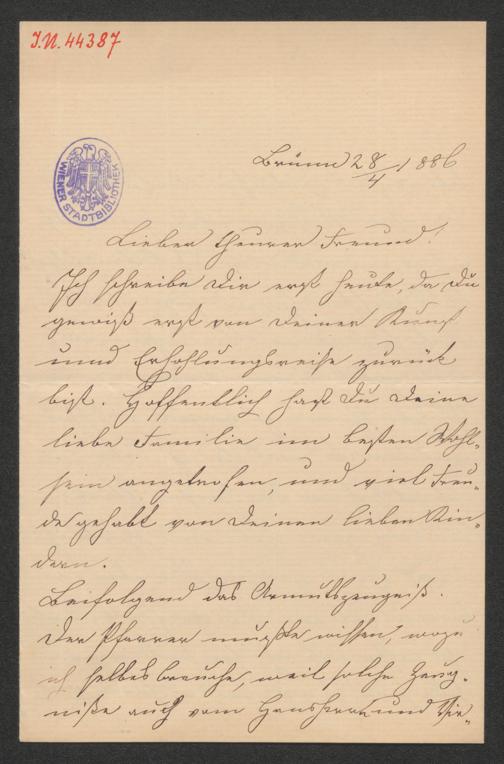 I.N. 44387
WIENER STADTBIBLIOTHEK
Brünn 28/4 1886
Lieber theurer Freund!
Ich schreibe Dir erst heute, da Du
gewiß erst von Deiner Kunst
und Erhohlungsreise zurück
bist. Hoffentlich hast Du Deine
liebe Familie im besten Wohl-
sein angetrofen, und viel Freu-
de gehabt von Deinen lieben Kin-
dern.
Beifolgend das Armutszeugniß.
Der Pfarrer mußte wissen, wozu
ich selbes brauche, weil solche Zeug-
niße auch vom Hausherrn und